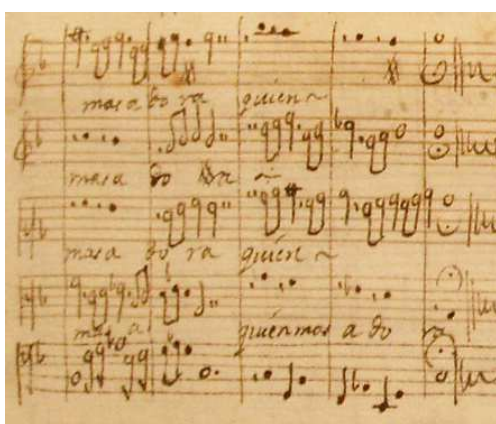 mas a do ra quien
mas a do ra
mas a do ra quien
mas a quien mas a do ra